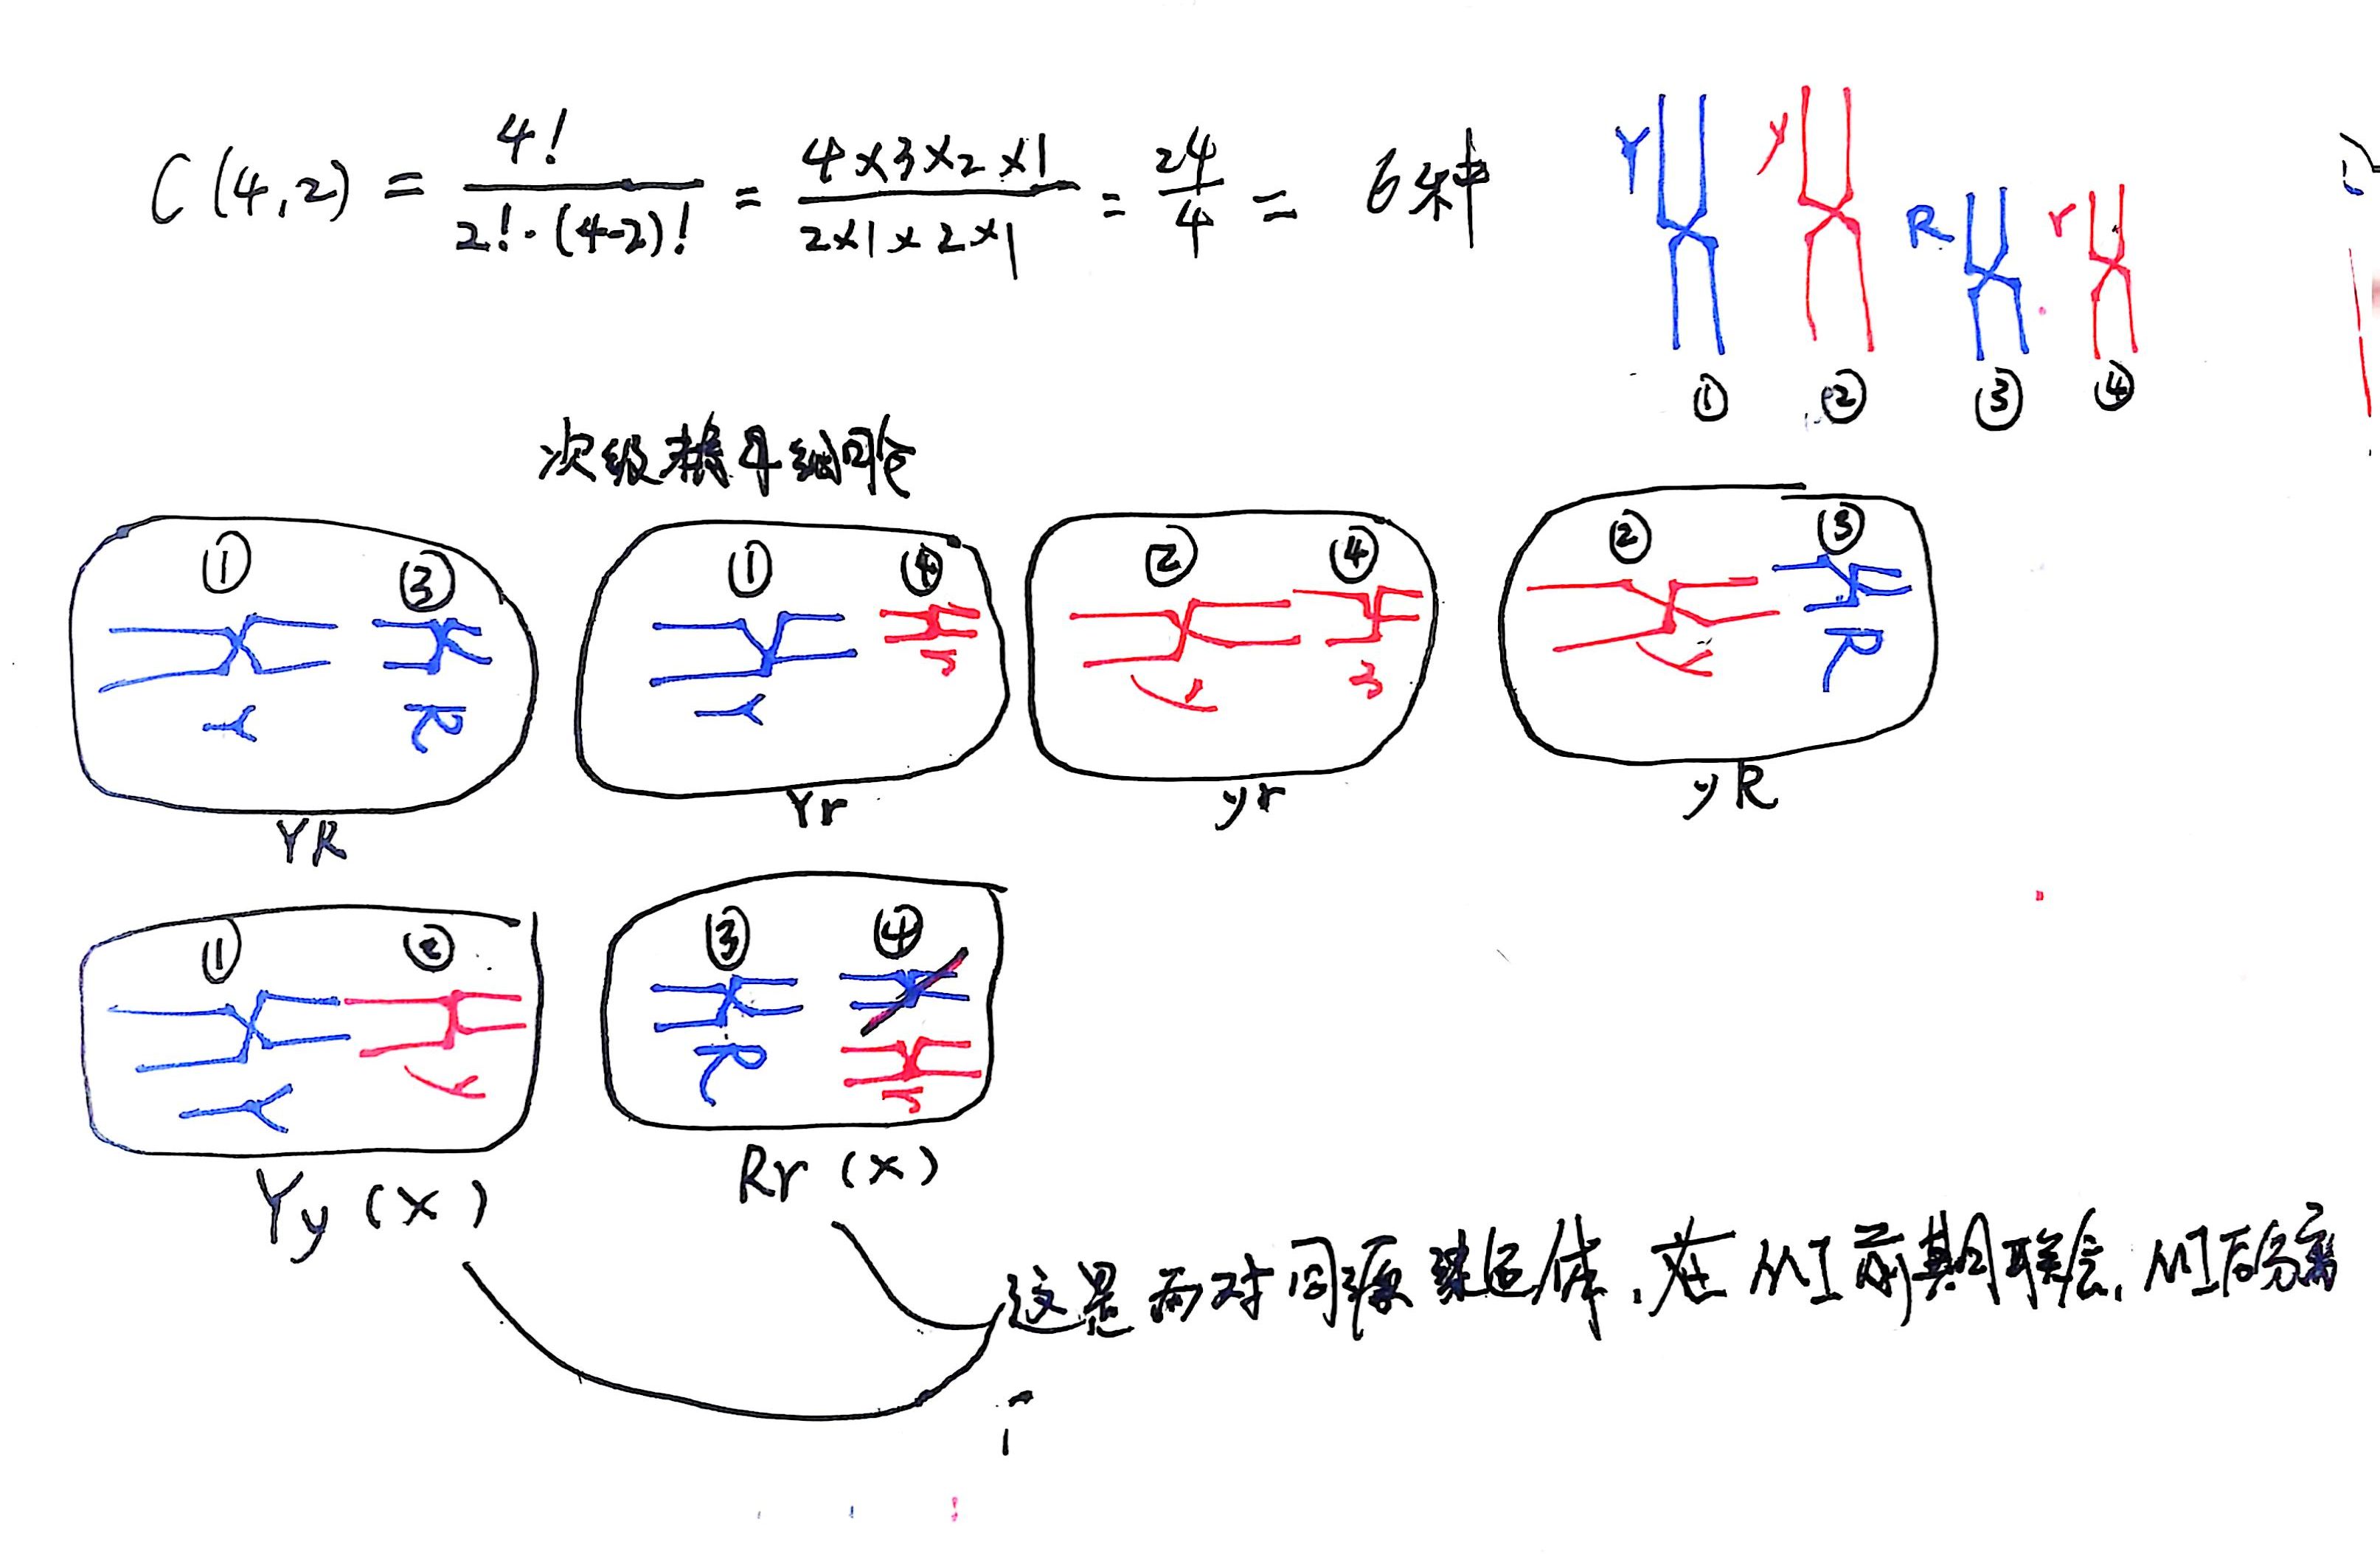 C(4,2) = 4! / 2!·(4-2)! = 4×3×2×1 / 2×1×2×1 = 24/4 = 6种
Y y R r
① ② ③ ④
次级精母细胞
① ③ ① ④ ② ④ ② ③
Y R Y r y r y R
YR Yr yr yR
① ② ③ ④
Y y R r
Yy (×) Rr (×)
这是两对同源染色体,在MI前期联会,MI后分离